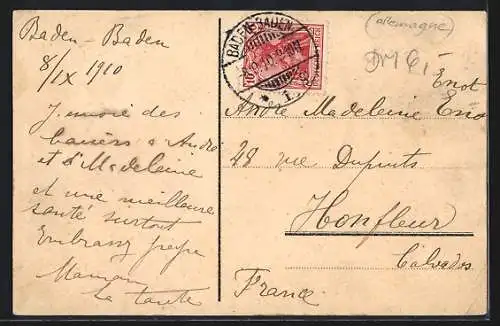 Baden-Baden
8/IX 1910
J'envoie des
baisers à André
et à Madeleine
et une meilleure
santé surtout
Embrassez
Maman
La tante
BADEN-BADEN
1
DEUTSCHES REICH
(allemagne)
Enot
André Madeleine Eno
28 rue Dupuits
Honfleur
Calvados
France